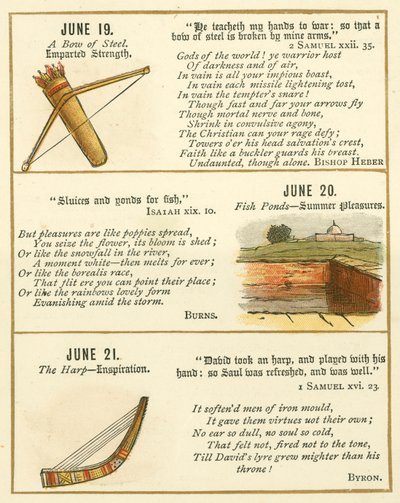 JUNE 19.
A Bow of Steel.
Imparted Strength.
"He teacheth my hands to war: so that a
bow of steel is broken by mine arms."
2 SAMUEL xxii. 35.
Gods of the world! ye warrior host
Of darkness and of air,
In vain is all your impious boast,
In vain each missile lightening tost,
In vain the tempter's snare!
Though fast and far your arrows fly
Though mortal nerve and bone,
Shrink in convulsive agony,
The Christian can your rage defy;
Towers o'er his head salvation's crest,
Faith like a buckler guards his breast.
Undaunted, though alone. BISHOP HEBER
"Sluices and ponds for fish,"
ISAIAH xix. 10.
But pleasures are like poppies spread,
You seise the flower, its bloom is shed;
Or like the snowfall in the river,
A moment white—then melts for ever;
Or like the borealis race,
That flit ere you can point their place;
Or like the rainbows lovely form
Evanishing amid the storm.
BURNS.
JUNE 20.
Fish Ponds—Summer Pleasures.
JUNE 21.
The Harp—Inspiration.
"David took an harp, and played with his
hand: so Saul was refreshed, and was well."
1 SAMUEL xvi. 23.
It soften'd men of iron mould,
It gave them virtues uot their own;
No ear so dull, no soul so cold,
That felt not, fired not to the tone,
Till David's lyre grew mighter than his
throne!
BYRON.